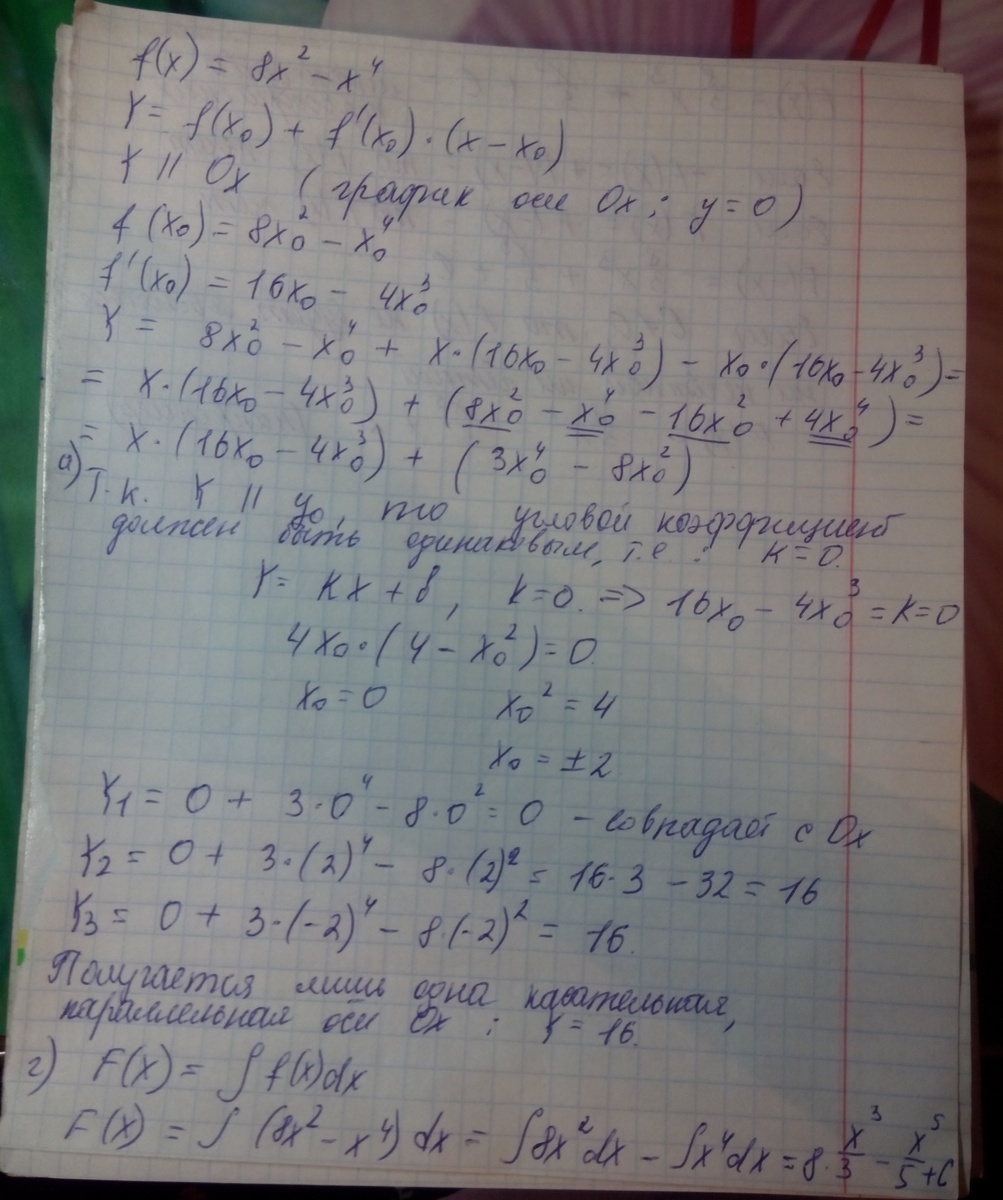 f(x) = 8x² − x⁴
Y = f(x₀) + f'(x₀)·(x − x₀)
Y || Ox (график оси Ox; y = 0)
f(x₀) = 8x₀² − x₀⁴
f'(x₀) = 16x₀ − 4x₀³
Y = 8x₀² − x₀⁴ + x·(16x₀ − 4x₀³) − x₀·(16x₀ − 4x₀³) =
= x·(16x₀ − 4x₀³) + (8x₀² − x₀⁴ − 16x₀² + 4x₀⁴) =
= x·(16x₀ − 4x₀³) + (3x₀⁴ − 8x₀²)
а) Т.к. Y || y₀, то угловой коэффициент
должен быть одинаковым, т.е.: K = 0.
Y = Kx + b, K = 0. => 16x₀ − 4x₀³ = K = 0
4x₀·(4 − x₀²) = 0.
x₀ = 0 x₀² = 4
x₀ = ±2
Y₁ = 0 + 3·0⁴ − 8·0² = 0 – совпадает с Ox
Y₂ = 0 + 3·(2)⁴ − 8·(2)² = 16·3 − 32 = 16
Y₃ = 0 + 3·(−2)⁴ − 8·(−2)² = 16.
Получается лишь одна касательная,
параллельная оси Ox: Y = 16.
г) F(x) = ∫ f(x)dx
F(x) = ∫ (8x² − x⁴) dx = ∫8x²dx − ∫x⁴dx = 8·x³/3 − x⁵/5 + C